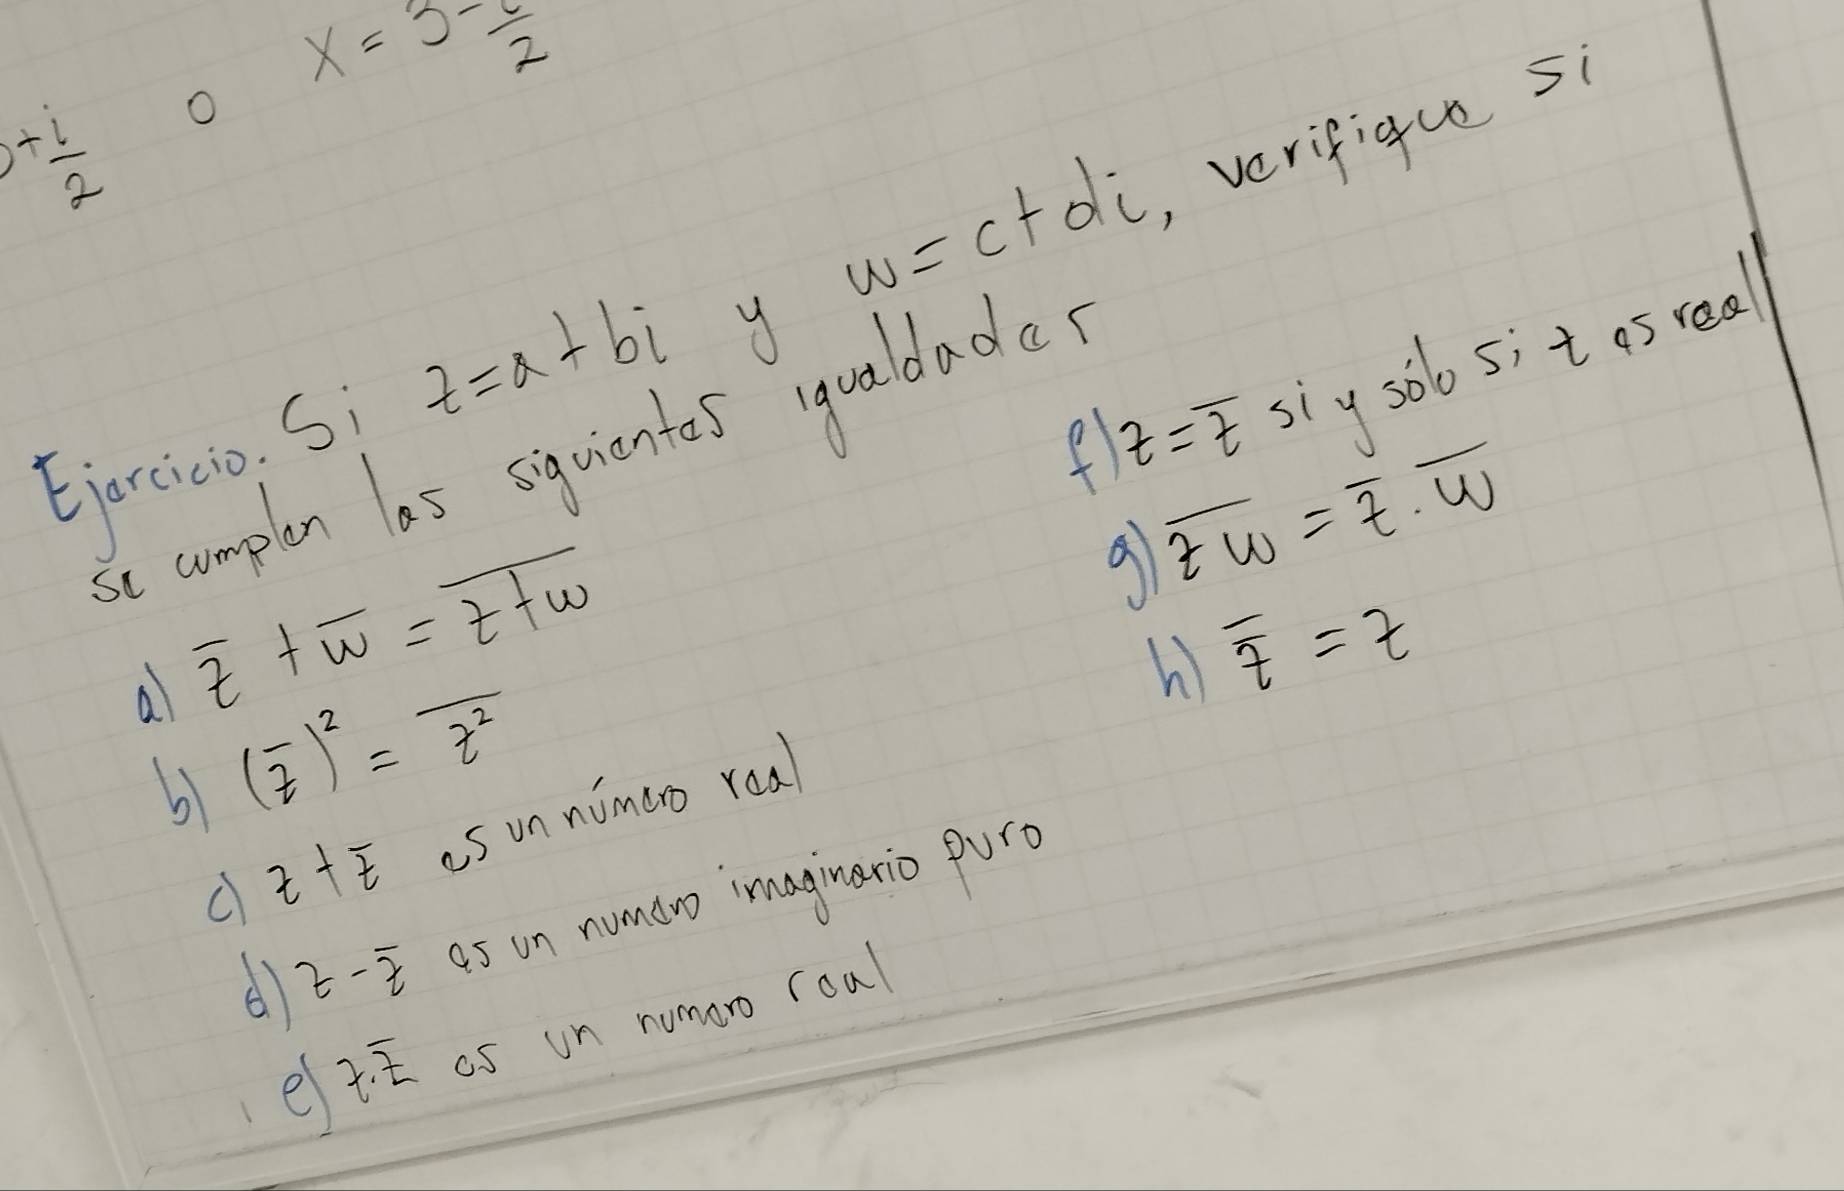 +i/2 o x = 3 - i/2
Ejercicio. Si z=a+bi y w=c+di, verifique si
se cumplen las siguientes igualdades
a) z̅ + w̅ = \overline{z+w}
b) (z̅)² = \overline{z²}
c) z+z̅ es un número real
d) z-z̅ es un numero imaginario puro
e) z.z̅ es un numero real
f) z=z̅ si y sólo si z es real
g) \overline{zw} = z̅.w̅
h) \overline{z̅} = z